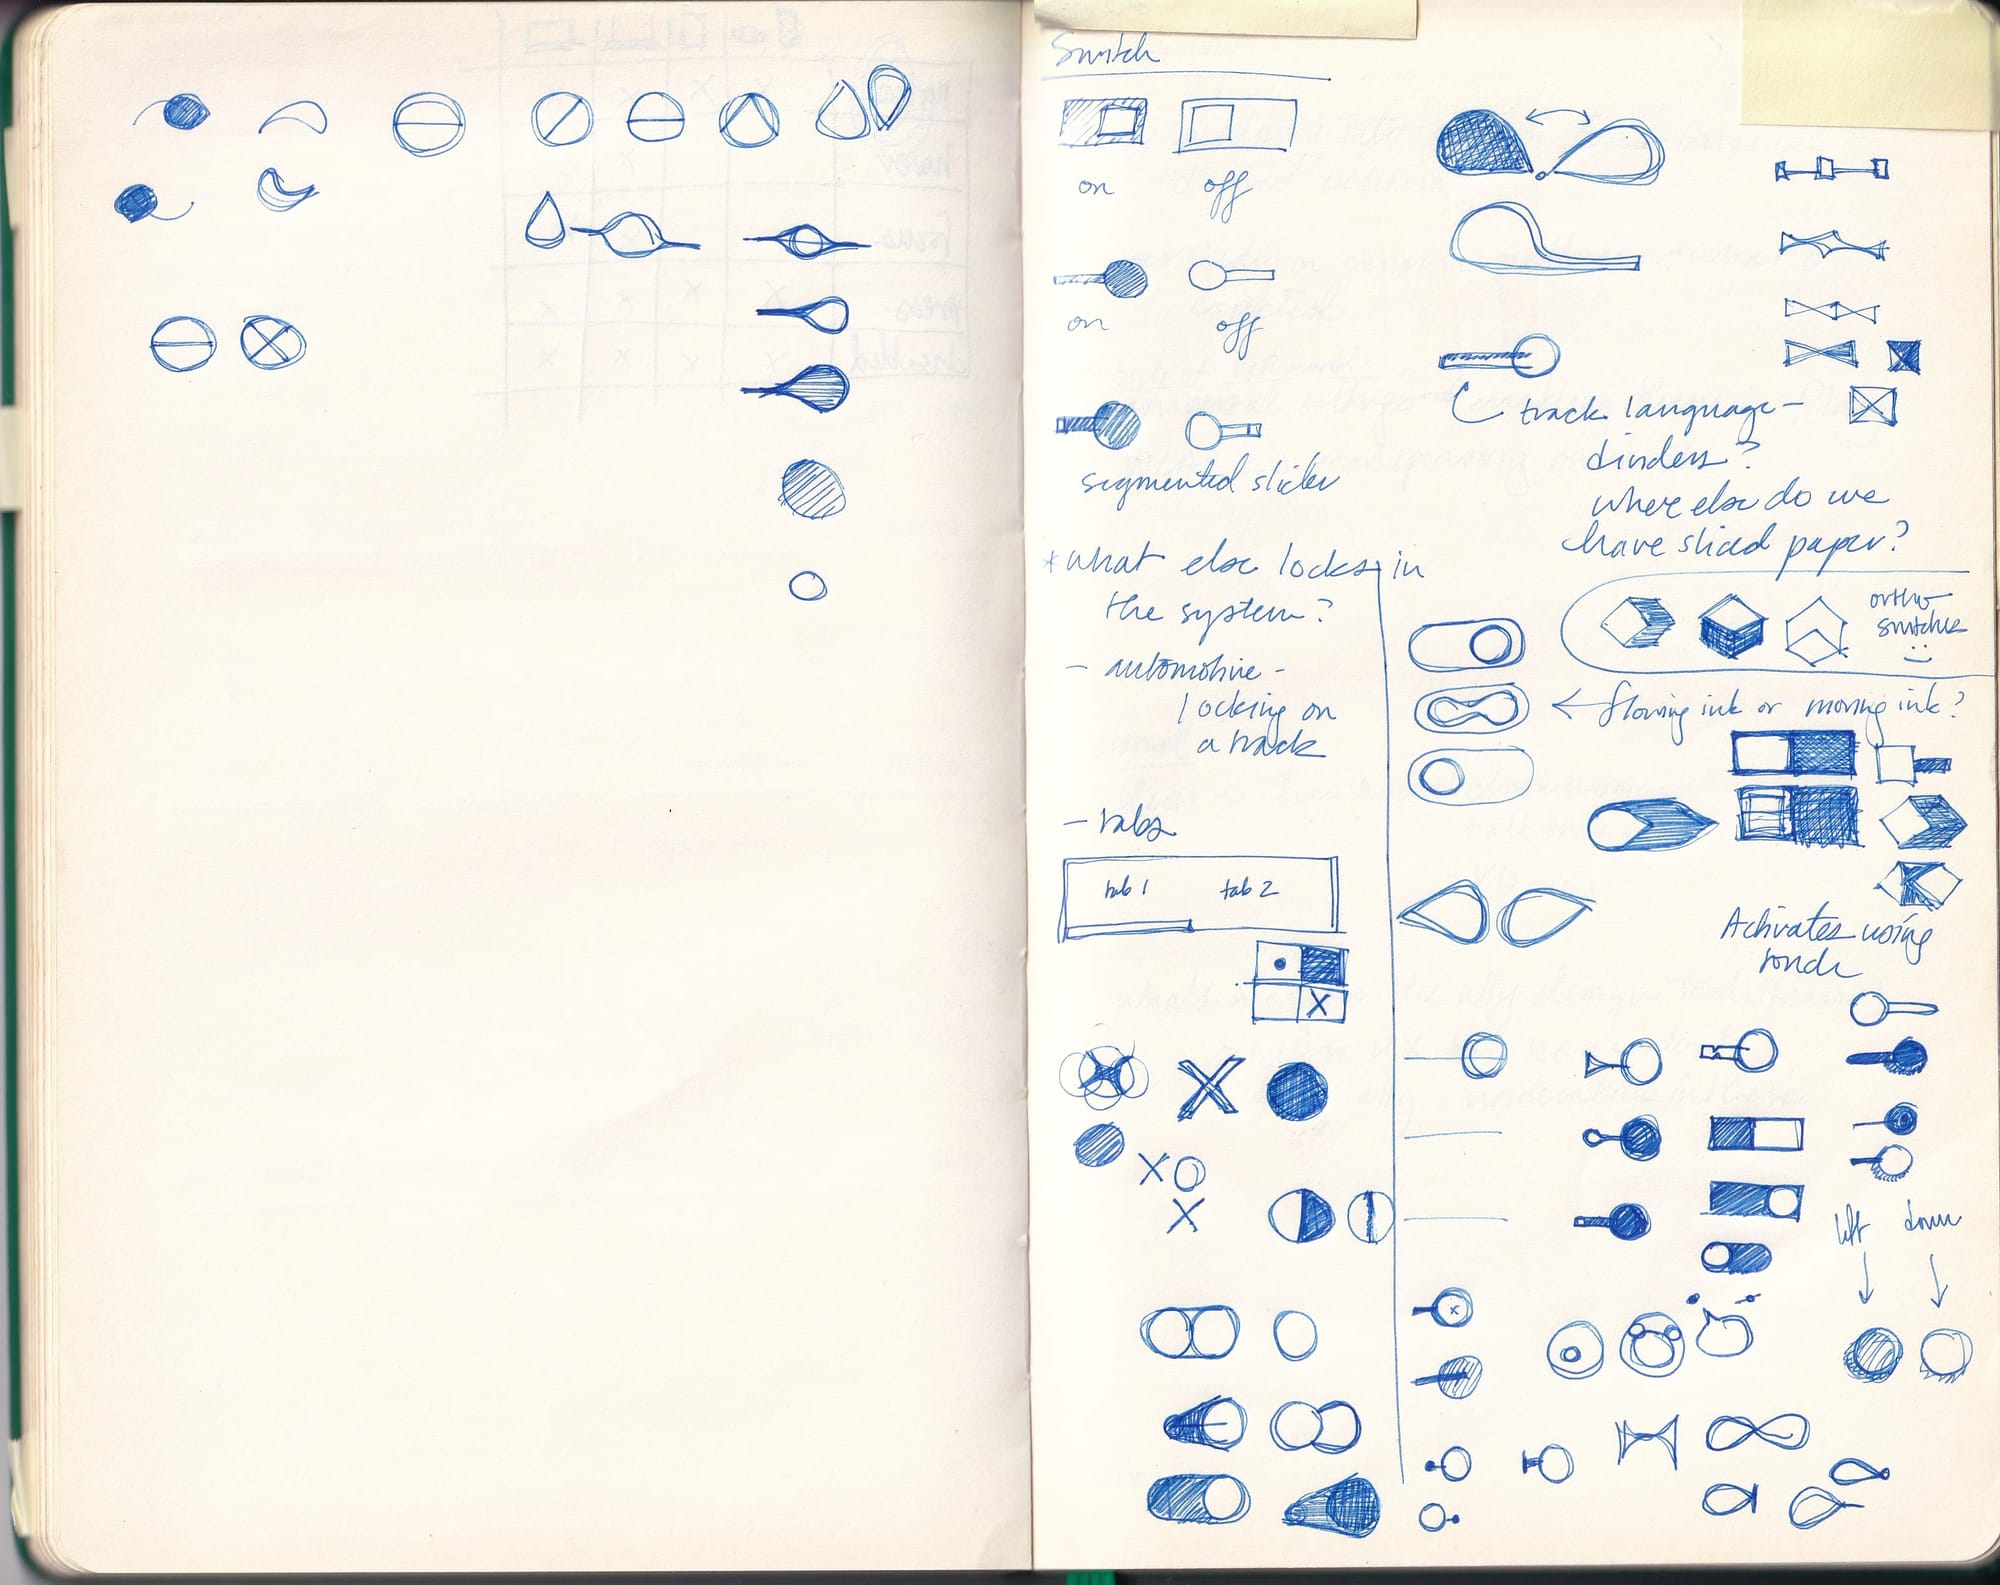 Switch
on off
on off
segmented slider
track language-
dividers?
where else do we
have sliced paper?
*what else locks in
the system?
- automotive -
locking on
a track
ortho
switches
← flowing ink or moving ink?
- tabs
tab 1 tab 2
Activates using
lift down